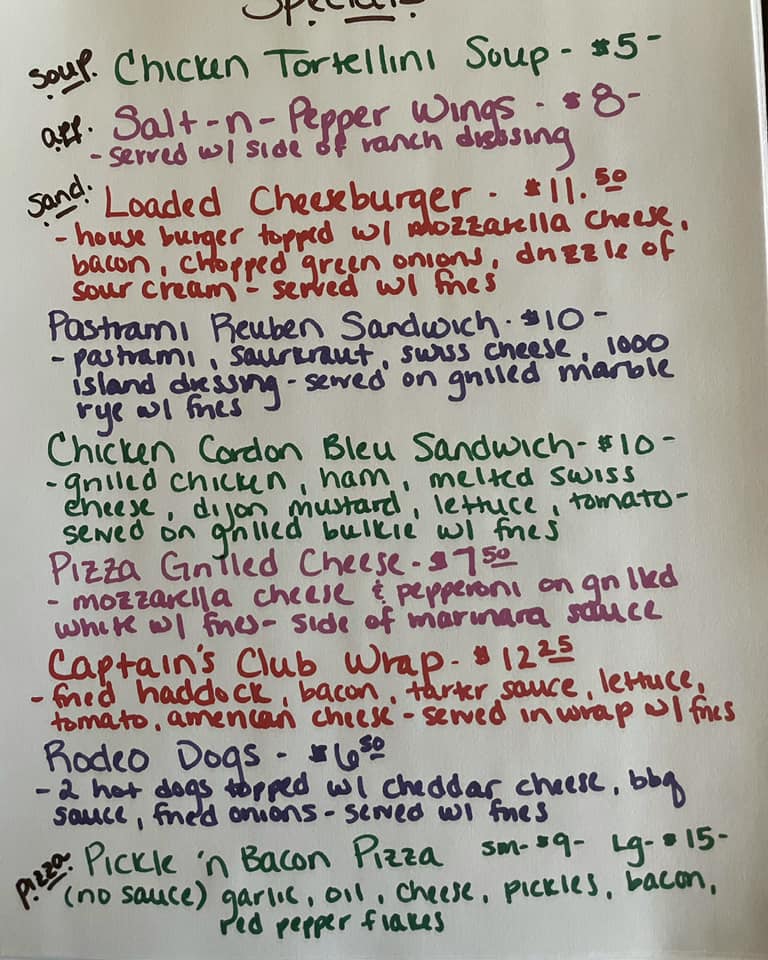 Specials
soup. Chicken Tortellini Soup - $5-
app. Salt-n-Pepper Wings - $8-
- served w/ side of ranch dressing
sand. Loaded Cheeseburger - $11.50
- house burger topped w/ mozzarella cheese,
bacon, chopped green onions, drizzle of
sour cream - served w/ fries
Pastrami Reuben Sandwich - $10-
- pastrami, saurkraut, swiss cheese, 1000
island dressing - served on grilled marble
rye w/ fries
Chicken Cordon Bleu Sandwich - $10-
- grilled chicken, ham, melted swiss
cheese, dijon mustard, lettuce, tomato-
served on grilled bulkie w/ fries
Pizza Grilled Cheese - $7 50
- mozzarella cheese & pepperoni on grilled
white w/ fries - side of marinara sauce
Captain's Club Wrap - $12 25
- fried haddock, bacon, tarter sauce, lettuce,
tomato, american cheese - served in wrap w/ fries
Rodeo Dogs - $6 50
- 2 hot dogs topped w/ cheddar cheese, bbq
sauce, fried onions - served w/ fries
pizza. Pickle 'n Bacon Pizza sm- $9- Lg- $15-
(no sauce) garlic, oil, cheese, pickles, bacon,
red pepper flakes